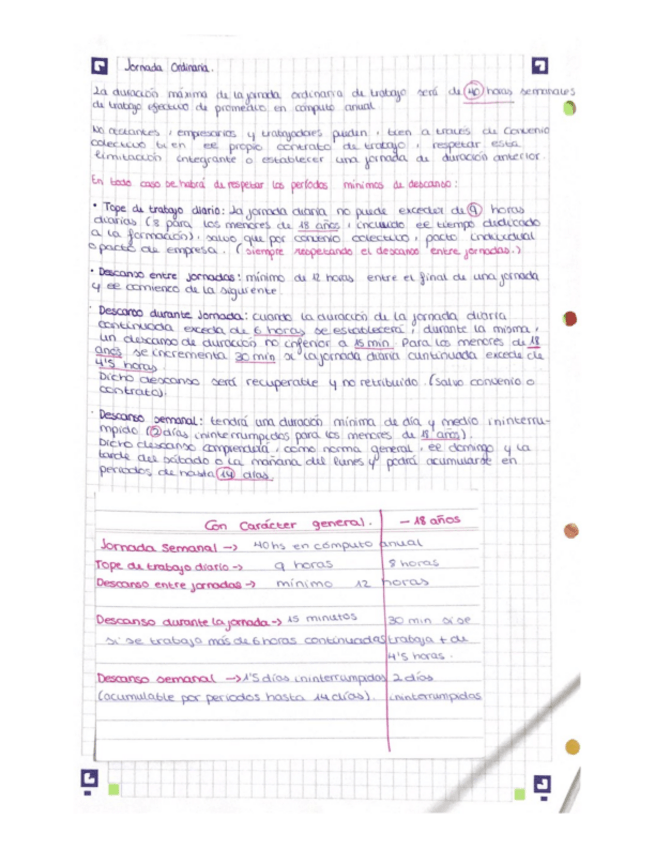 Jornada Ordinaria.
La duración máxima de la jornada ordinaria de trabajo será de 40 horas semanales
de trabajo efectivo de promedio en cómputo anual
No obstante, empresarios y trabajadores pueden, bien a través de Convenio
colectivo bien el propio contrato de trabajo, respetar esta
limitación integrante o establecer una jornada de duración anterior.
En todo caso se habrá de respetar los períodos mínimos de descanso:
• Tope de trabajo diario: la jornada diaria no puede exceder de 9 horas
diarias (8 para los menores de 18 años, incluido el tiempo dedicado
a la formación), salvo que por convenio colectivo, pacto individual
o pacto de empresa. (siempre respetando el descanso entre jornadas.)
• Descanso entre jornadas: mínimo de 12 horas entre el final de una jornada
y el comienzo de la siguiente.
· Descanso durante Jornada: cuando la duración de la jornada diaria
continuada exceda de 6 horas se establecerá, durante la misma,
un descanso de duración no inferior a 15 min. Para los menores de 18
años se incrementa 30 min si la jornada diaria continuada excede de
4'5 horas.
Dicho descanso será recuperable y no retribuido. (salvo convenio o
contrato).
· Descanso semanal: tendrá una duración mínima de día y medio ininterru-
mpido (2 días ininterrumpidos para los menores de 18 años).
Dicho descanso comprenderá, como norma general, el domingo y la
tarde del sábado o la mañana del lunes y podrá acumularse en
periodos de hasta 14 días.
Con Carácter general. - 18 años
Jornada Semanal -> 40 hs en cómputo anual
Tope de trabajo diario -> 9 horas 8 horas
Descanso entre jornadas -> mínimo 12 horas
Descanso durante la jornada -> 15 minutos 30 min si se
si se trabaja más de 6 horas continuadas trabaja + de
4'5 horas.
Descanso semanal -> 1'5 días ininterrumpidos 2 días
(acumulable por periodos hasta 14 días). ininterrumpidos